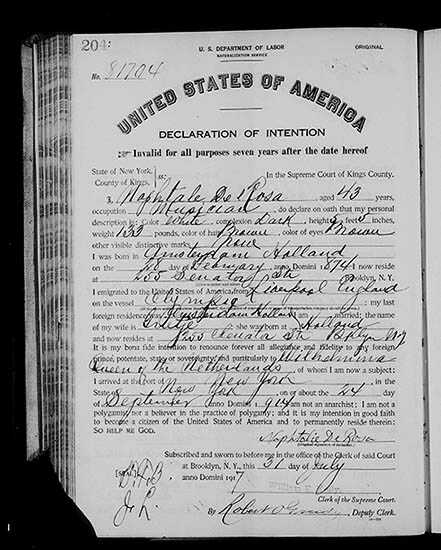 204
U. S. DEPARTMENT OF LABOR
NATURALIZATION SERVICE
ORIGINAL
No. 81704
UNITED STATES OF AMERICA
DECLARATION OF INTENTION
Invalid for all purposes seven years after the date hereof
State of New York,
County of Kings, ss:
In the Supreme Court of Kings County.
I, Naphtalie De Rosa, aged 43 years,
occupation Musician, do declare on oath that my personal
description is: Color White, complexion dark, height 5 feet inches,
weight 133 pounds, color of hair Brown, color of eyes Brown
other visible distinctive marks None
I was born in Amsterdam Holland
on the day of February, anno Domini 1874; I now reside
at Brooklyn, N. Y.
I emigrated to the United States of America from Liverpool England
on the vessel Olympic; my last
foreign residence was Amsterdam Holland; I am married; the name
of my wife is; she was born at Holland
and now resides at Bklyn NY
It is my bona fide intention to renounce forever all allegiance and fidelity to any foreign
prince, potentate, state, or sovereignty, and particularly to Wilhelmina
Queen of the Netherlands, of whom I am now a subject;
I arrived at the port of New York, in the
State of New York on or about the 24 day
of September, anno Domini 1914; I am not an anarchist; I am not a
polygamist nor a believer in the practice of polygamy; and it is my intention in good faith
to become a citizen of the United States of America and to permanently reside therein:
SO HELP ME GOD.
Naphtalie De Rosa
Subscribed and sworn to before me in the office of the Clerk of said Court
at Brooklyn, N. Y., this 31 day of July
[SEAL] anno Domini 1917
Clerk of the Supreme Court.
By Robert, Deputy Clerk.